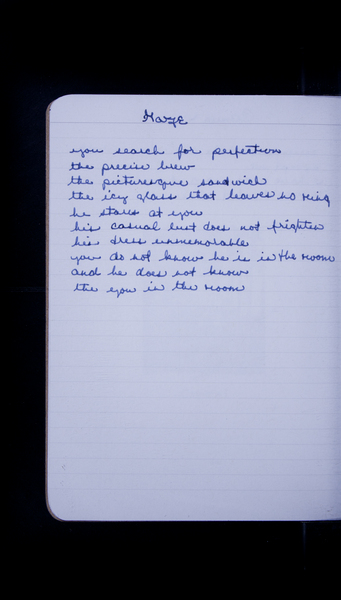 Gaze
you search for perfection
the precise brew
the picturesque sandwich
the icy glass that leaves no ring
he stares at you
his casual lust does not frighten
his dress unmemorable
you do not know he is in the room
and he does not know
the you in the room